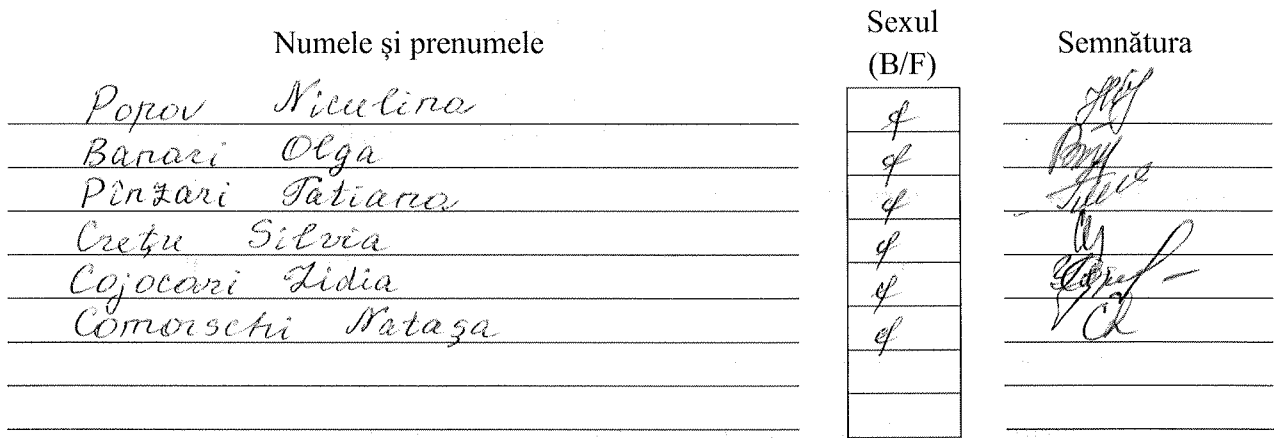 Numele și prenumele Sexul (B/F) Semnătura
Popov Niculina f
Banari Olga f
Pînzari Tatiana f
Crețu Silvia f
Cojocari Lidia f
Natașa f